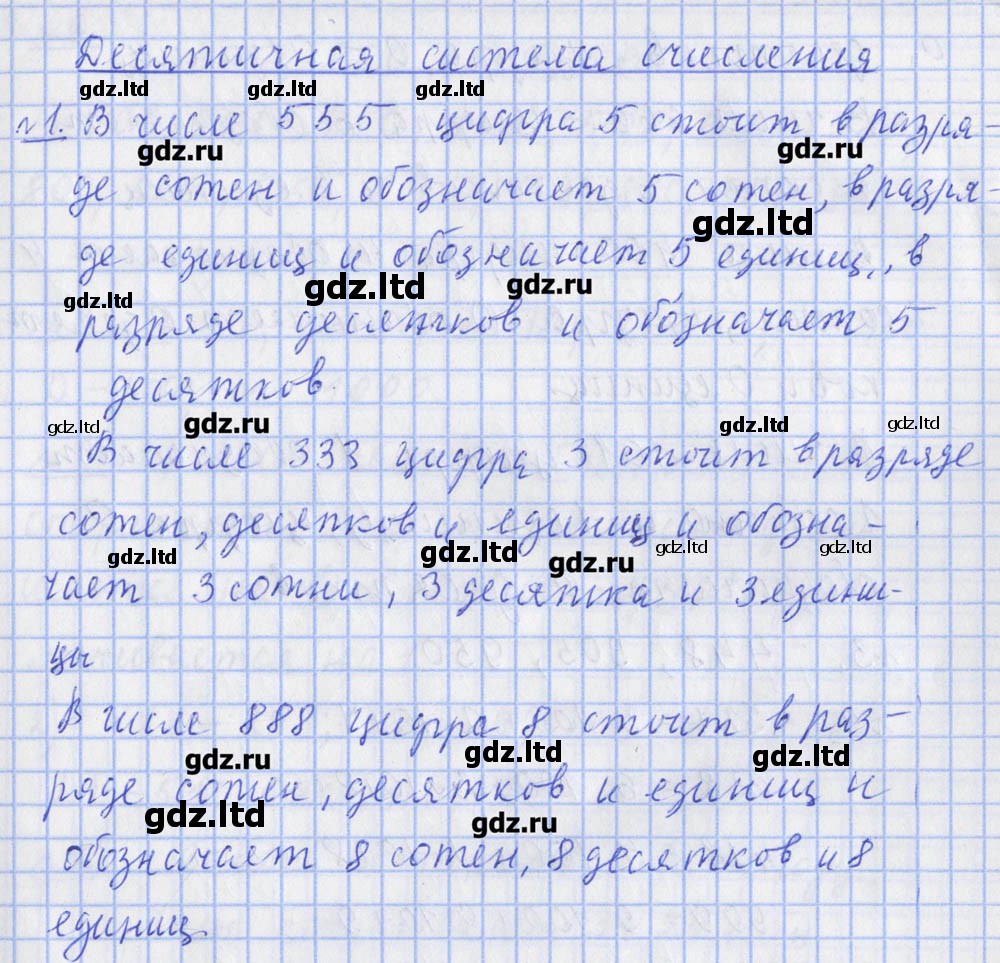 Десятичная система счисления
gdz.ltd gdz.ltd gdz.ltd
№1. В числе 555 цифра 5 стоит в разря-
gdz.ru gdz.ru
де сотен и обозначает 5 сотен, в разря-
gdz.ltd
де единиц и обозначает 5 единиц, в
gdz.ltd gdz.ltd gdz.ru
разряде десятков и обозначает 5
десятков.
gdz.ltd gdz.ru gdz.ltd gdz.ltd
В числе 333 цифра 3 стоит в разряде
сотен, десятков и единиц и обозна-
gdz.ltd gdz.ltd gdz.ru gdz.ltd gdz.ltd
чает 3 сотни, 3 десятка и 3 едини-
цы
В числе 888 цифра 8 стоит в раз-
gdz.ru gdz.ltd gdz.ltd
ряде сотен, десятков и единиц и
gdz.ltd gdz.ru
обозначает 8 сотен, 8 десятков и 8
единиц.